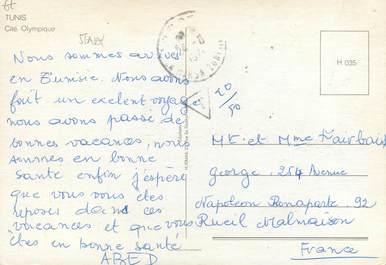 TUNIS
Cité Olympique
H 035
Nous sommes arrivés
en Tunisie. Nous avons
fait un exelent voyage
nous avons passé de
bonnes vacances, nous
sommes en bonne
santé enfin j'espère
que vous vous êtes
reposer dans ces
vacances et que vous
êtes en bonne santé
ABED
20/90
Mr et Mme Fairbau
george, 254 Avenue
Napoléon Bonaparte. 92
Rueil Malmaison
France